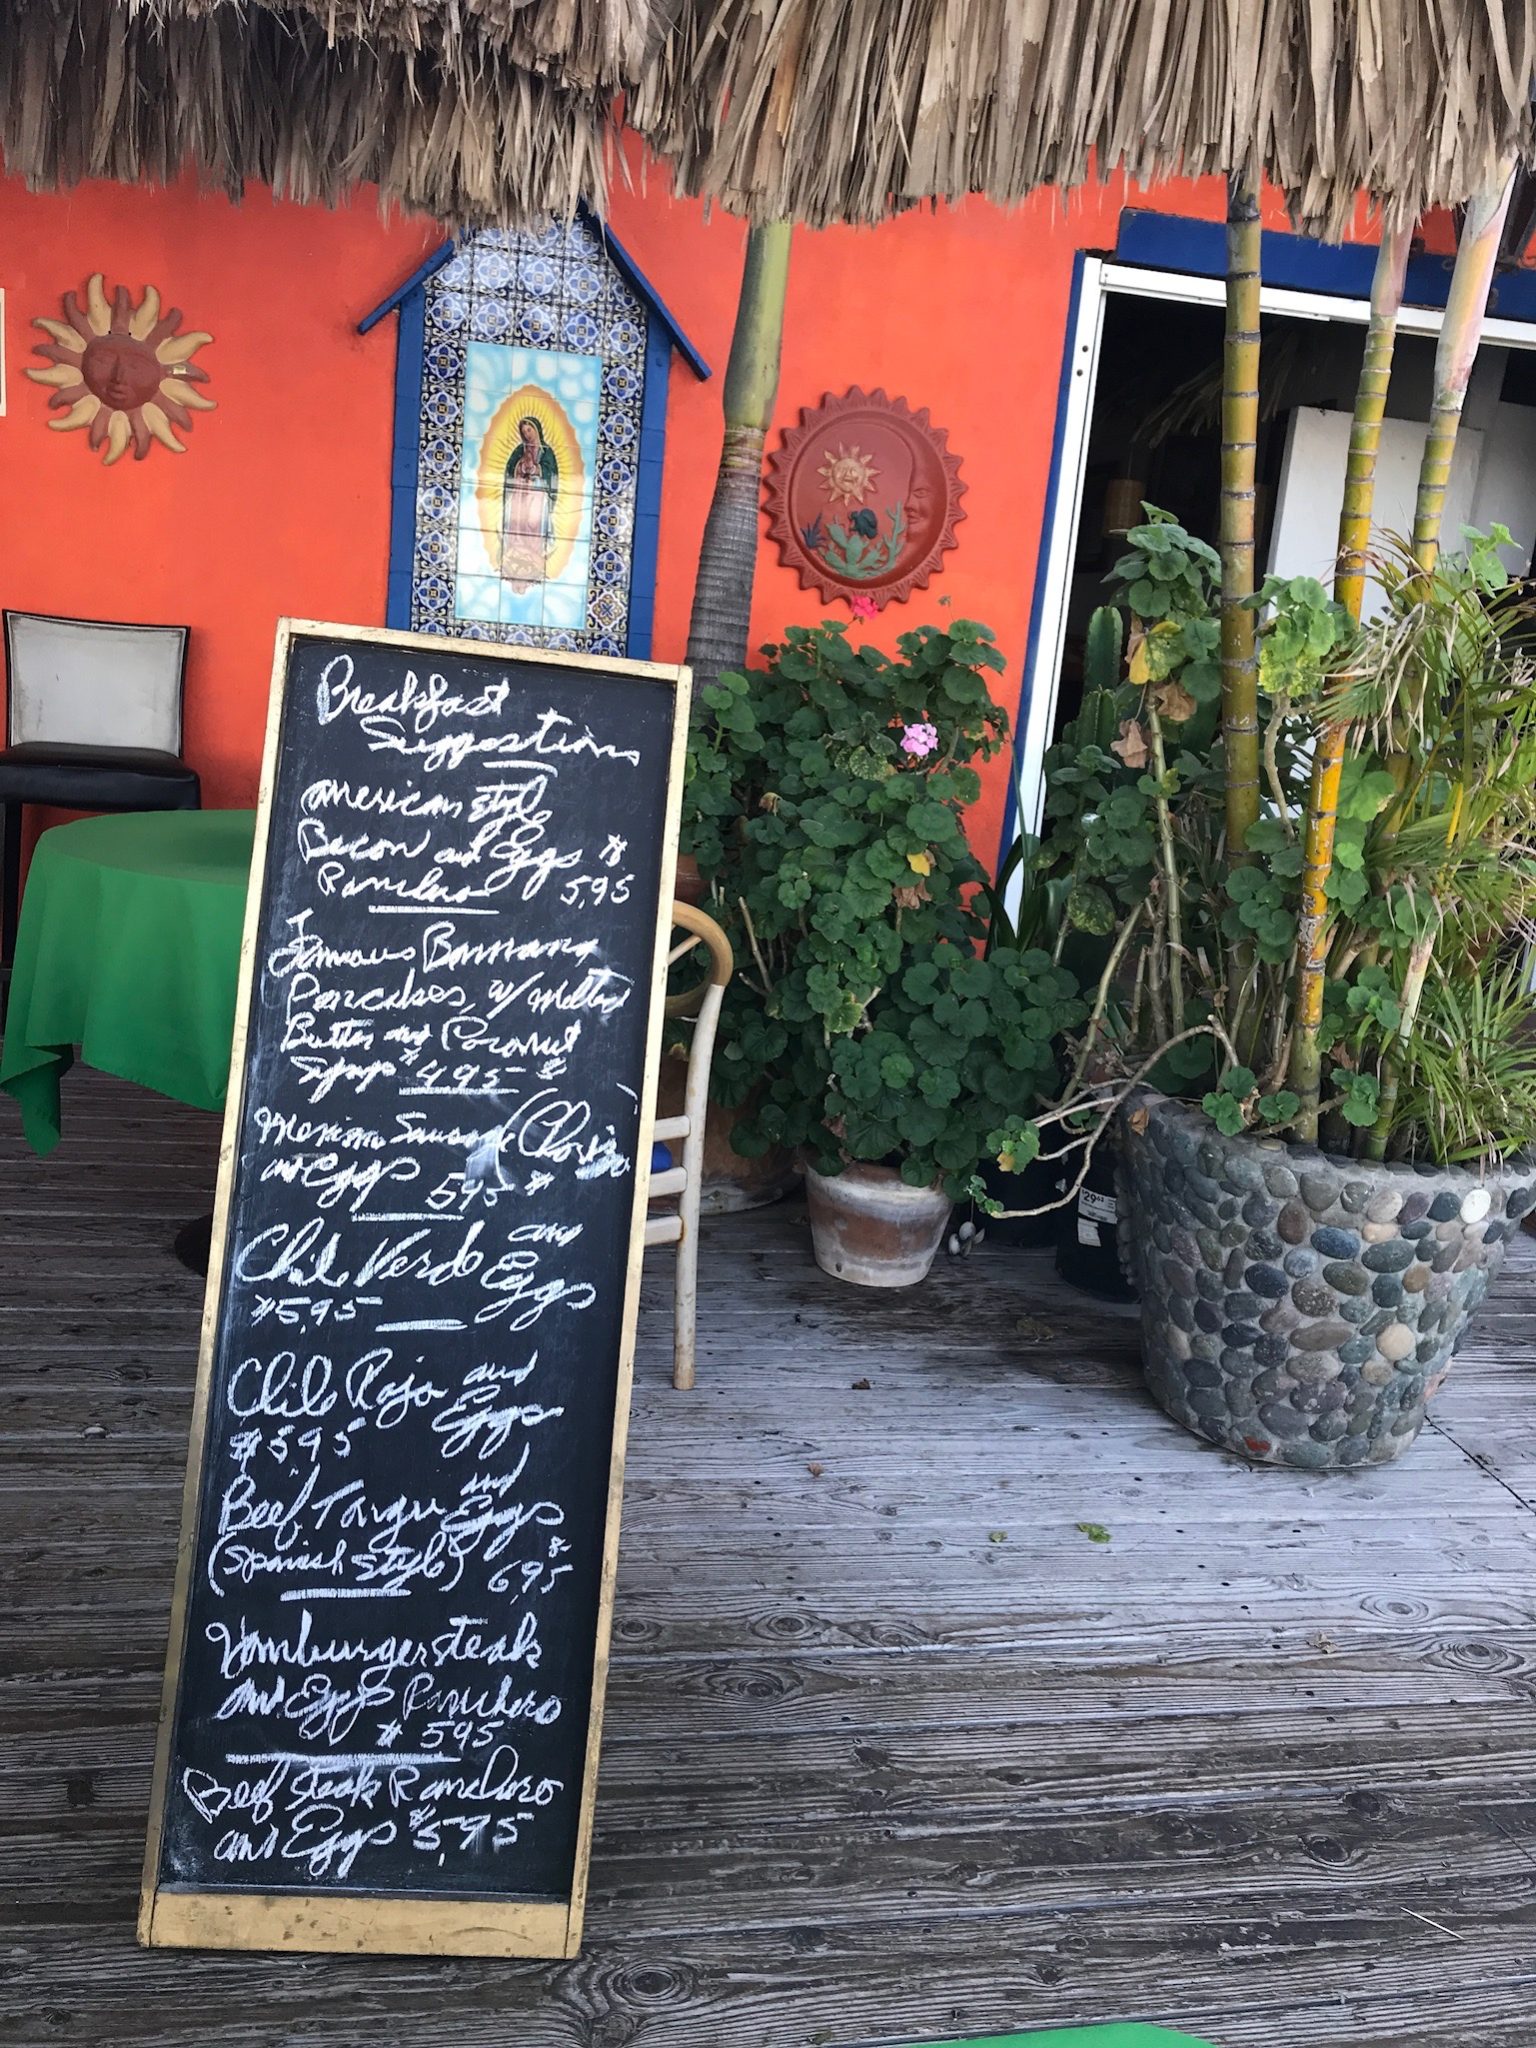 Breakfast
Suggestions
American style
Bacon and Eggs $
Ranchero 5,95
Famous Banana
Pancakes, w/ Melted
Butter and Coconut
Syrup $ 495
Mexican Sausage (Choriso)
and Eggs 595 $
Chile Verde and
Eggs
$5,95
Chile Rojo and
Eggs
$595
Beef Tongue and
Eggs
(Spanish Style) 6,95
Hamburger steak
and Eggs Ranchero
$ 595
Beef Steak Ranchero
and Eggs $5,95